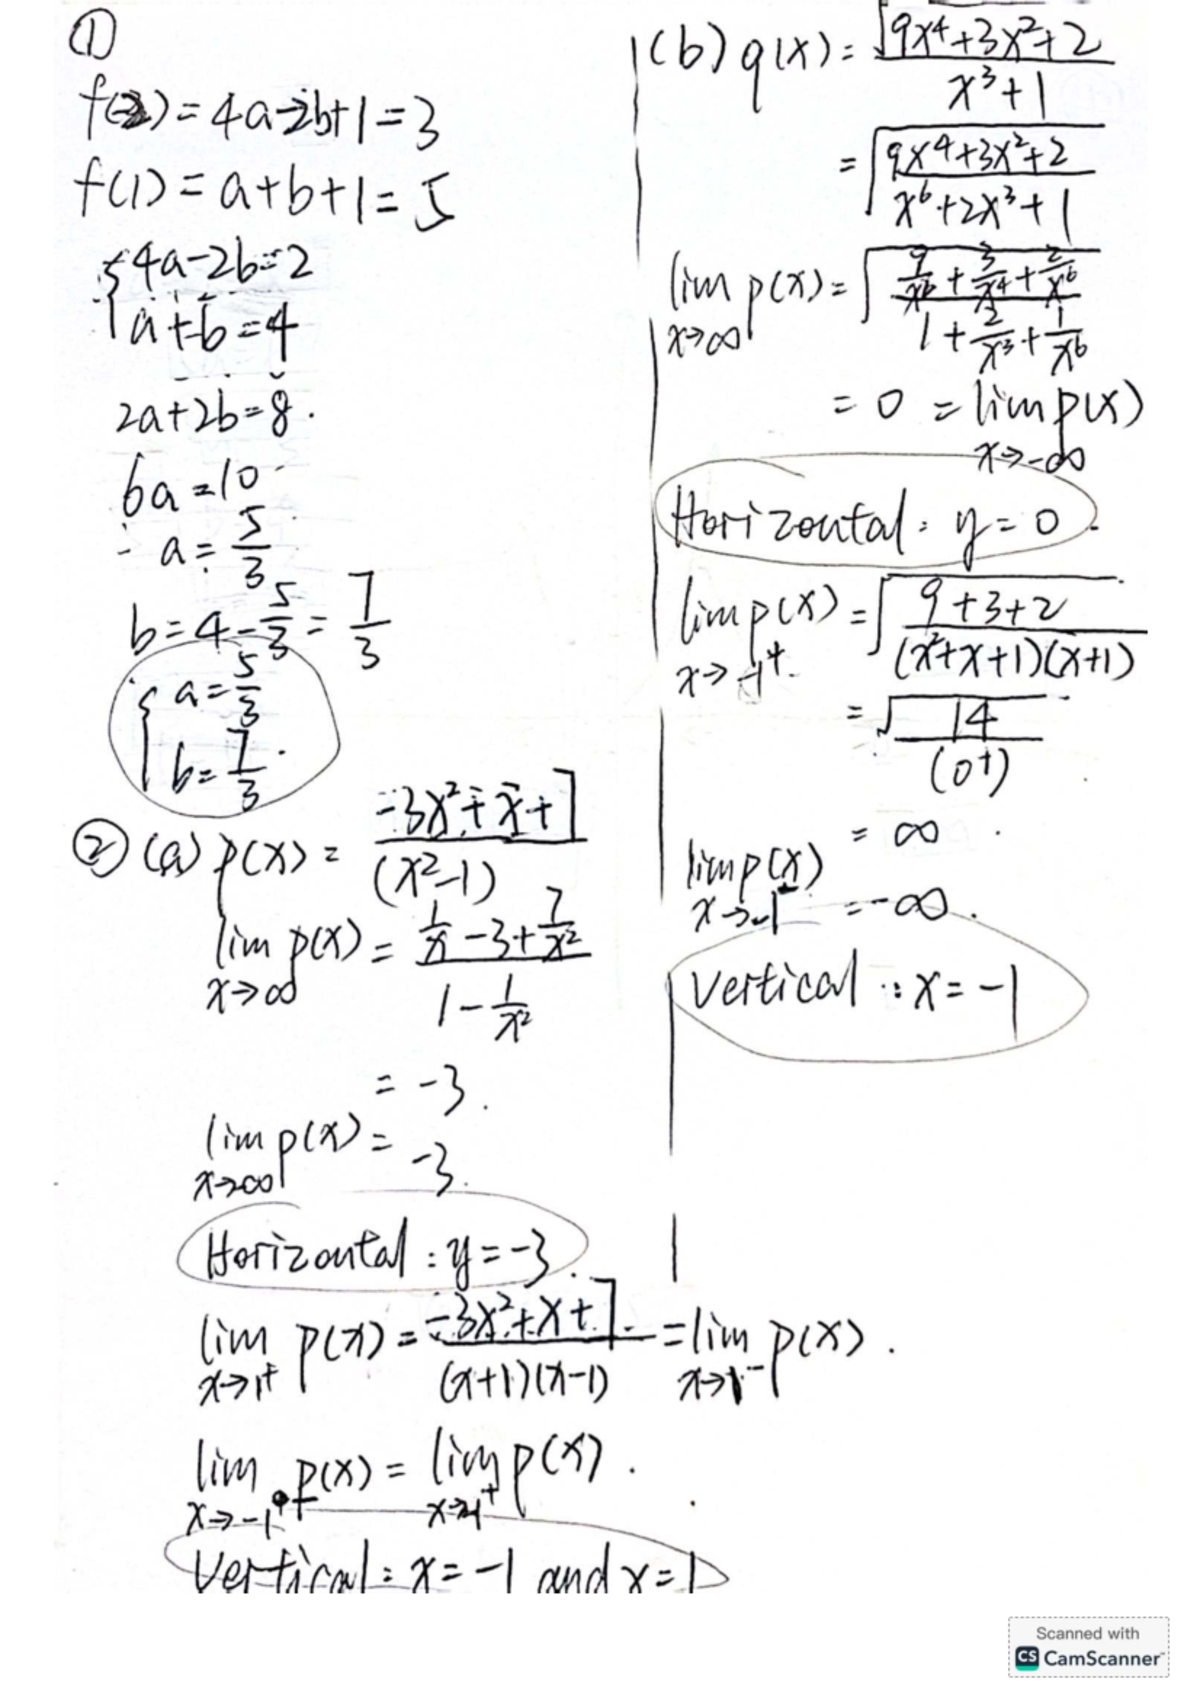 ①
f(-2) = 4a-2b+1 = 3
f(1) = a+b+1 = 5
{ 4a-2b=2
a+b=4
2a+2b=8.
6a=10
a = 5/3
b = 4 - 5/3 = 7/3
{ a = 5/3
b = 7/3
② (a) p(x) = (-3x²+x+7)/(x²-1)
lim x→∞ p(x) = (1/x - 3 + 7/x²)/(1 - 1/x²)
= -3.
lim x→∞ p(x) = -3.
Horizontal : y = -3.
lim x→1⁺ p(x) = (-3x²+x+7)/((x+1)(x-1)) = lim x→1⁻ p(x).
lim x→-1⁺ p(x) = lim x→-1⁺ p(x).
Vertical : x = -1 and x = 1
(b) q(x) = √(9x⁴+3x²+2)/(x³+1)
= √((9x⁴+3x²+2)/(x⁶+2x³+1))
lim x→∞ p(x) = √((9/x⁶ + 3/x⁴ + 2/x⁶)/(1 + 2/x³ + 1/x⁶))
= 0 = lim x→-∞ p(x)
Horizontal : y = 0.
lim x→-1⁺ p(x) = √((9+3+2)/((x²+x+1)(x+1)))
= √(14/(0⁺))
= ∞.
lim x→-1⁻ p(x) = -∞.
Vertical : x = -1
Scanned with
CS CamScanner